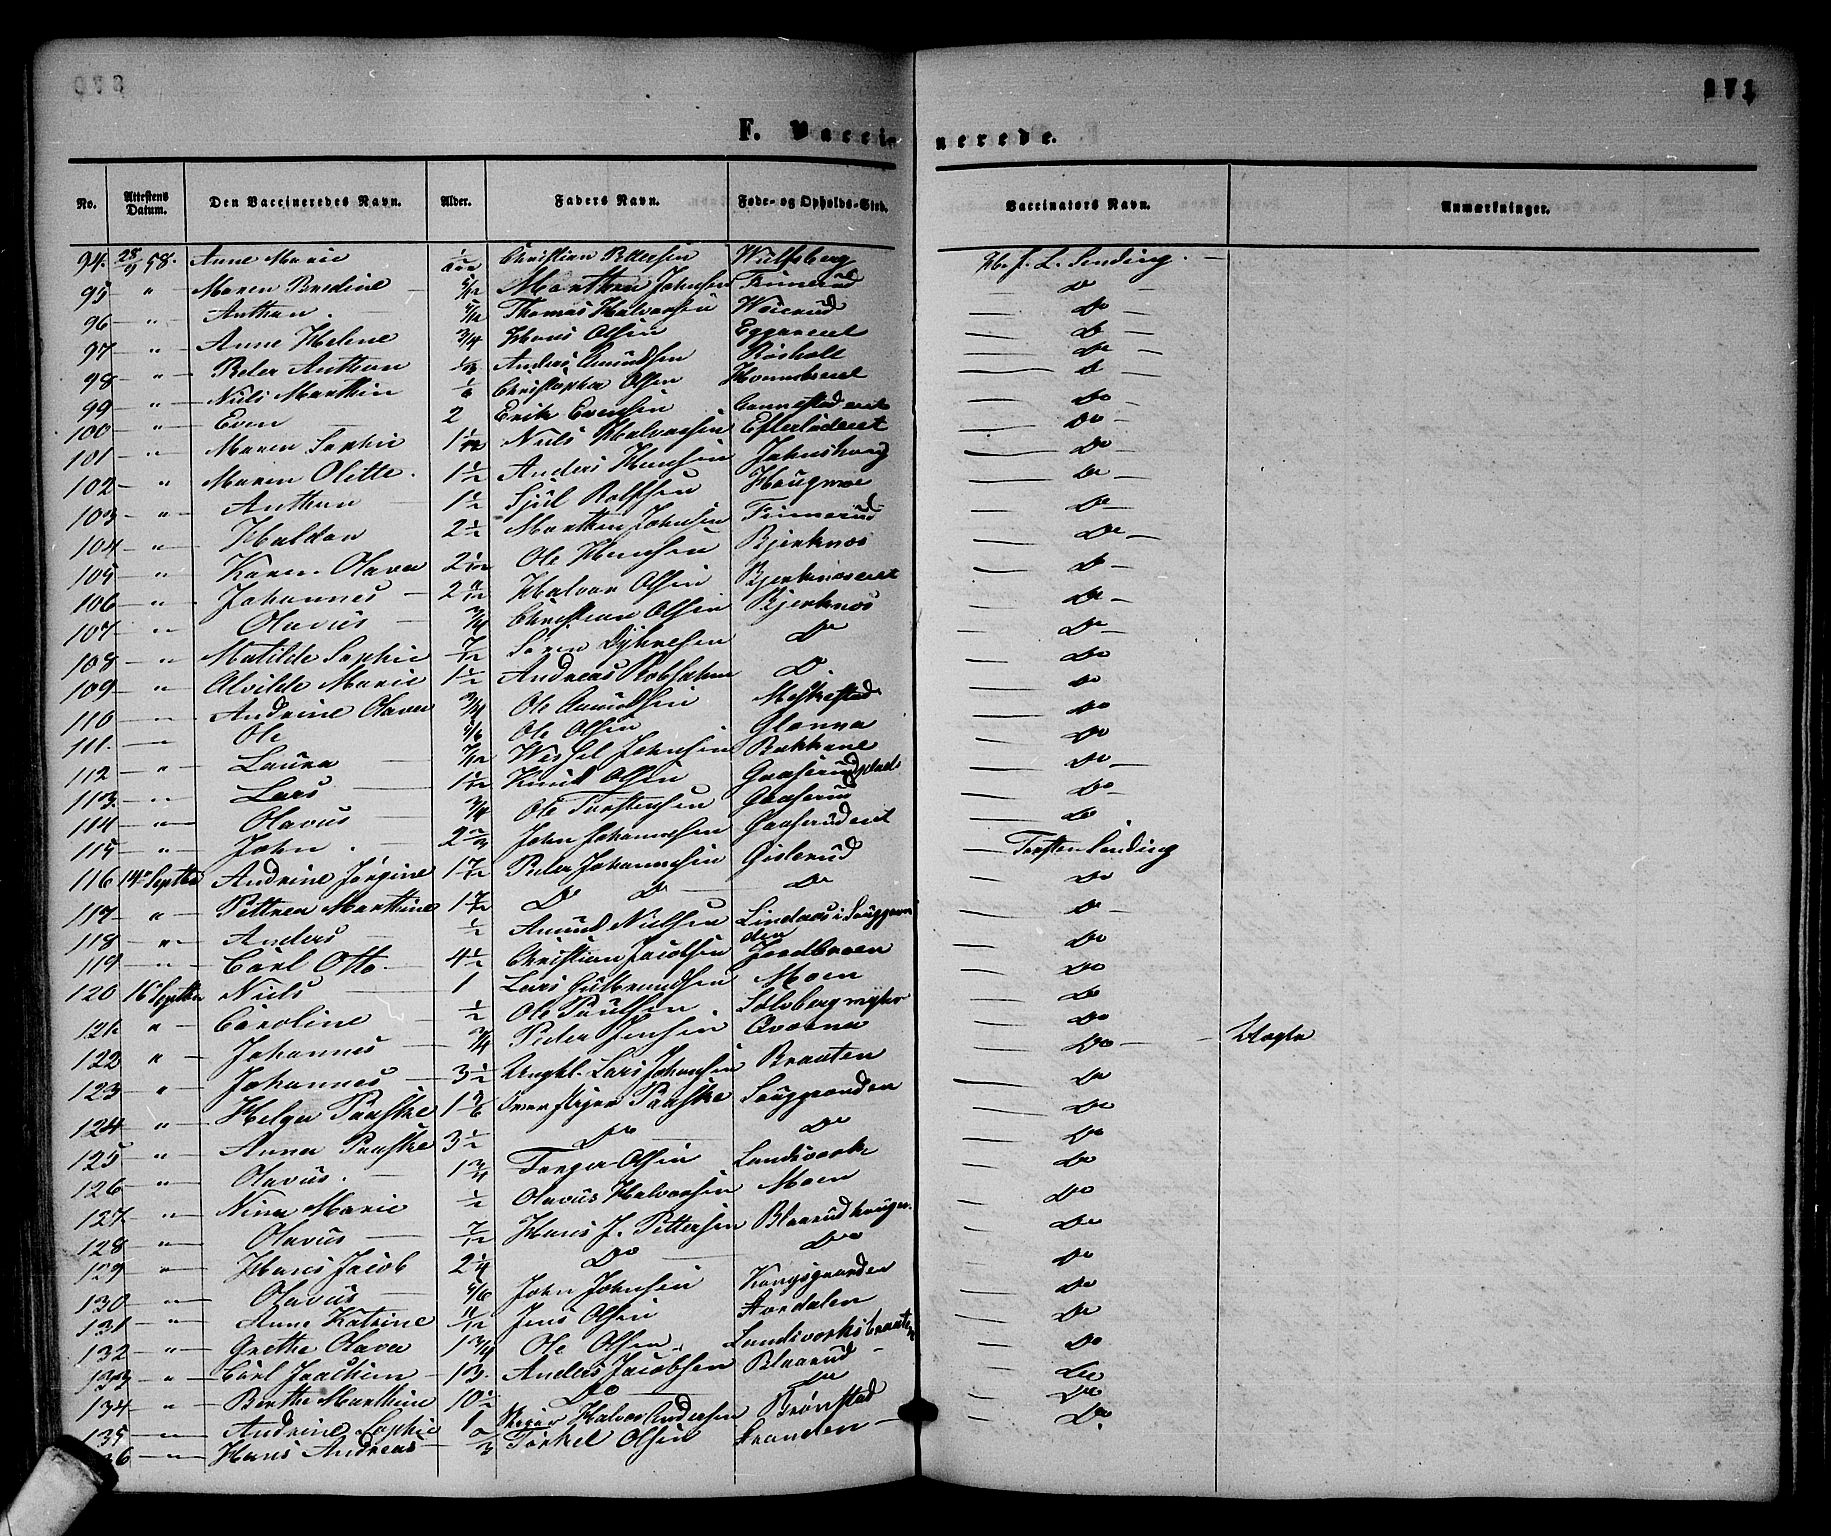 271
F. Vaccinerede.
No. Attestens Datum. Den Vaccineredes Navn. Alder. Faders Navn. Føde- og Opholds-Sted. Vaccinators Navn. Anmærkninger.
94. 58. Anne Marie Christian Pettersen Wulfsberg L. Sending.
95 " Maren Bredine 5/12 Marthin Johnsen Finnerud Do
96 " Anthon. 5/12 Thomas Halvorsen Do
97 " Anne Helene 3/4 Hans Olsen Eggareiet Do
98 " Peter Anthon 1/3 Anders Amundsen Røsholt Do
99 " Niels Marthin 1/6 Christopher Olsen Do
100 " Even 2 Erik Evensen Do
101 " Maren Sophie Niels Halvorsen Efterlodeiet Do
102 " Maren Olette. 1 1/2 Anders Hansen Johnskoug Do
103 " Anthon 1 1/2 Sjul Rolfsen Haugmoe Do
104 " Haldan 2 1/2 Marthin Johnsen Finnerud Do
105 " Karen Olava Ole Hansen Bjerknæs Do
106 " Johannes Halvor Olsen Bjerknæseiet Do
107 " Olavus 3/4 Christian Olsen Bjerknæs Do
108 " Matilde Sophie 7/12 Søren Dykresen Do Do
109 " Alvilde Marie 1 1/2 Andreas Robsahm Do Do
110 " Andrine Olava 3/4 Ole Amundsen Do
111. " Ole 5/6 Ole Olsen Glenna Do
112 " Laura 7/12 Wessel Johnsen Bakkene Do
113. " Lars 1 1/12 Knud Olsen Gaaserudplads Do
114 " Olavus 3/4 Ole Torstensen Gaaserud Do
115 " John. 2 2/3 John Johannesen Gaaserudeiet Do
116 14de Septbr Andrine Jørgine 1 7/12 Peter Johannesen Gislerud Torsten Sending
117 " Pettrea Marthine 1 7/12 Do Do Do Do
118 " Anders 1/2 Amund Nielsen Lindaas i Snuggerenden Do
119 " Carl Otto. 4 1/2 Christian Jacobsen Do
120 16 Septbr Niels 1 Lars Gulbrandsen Moen Do
121. " Caroline 1/2 Ole Paulsen Sølvbergmyhr Do
122 " Johannes 3/4 Peder Jensen Qværna Do
123 " Johannes 3 1/2 Ungkl. Lars Johansen Braaten Do
124 " Helga Paaske 1 5/6 Overstiger Paaske Snuggerenden Do
125 " Anna Paaske 3 1/2 Do Do Do
126 " Olavus. 1 3/4 Torger Olsen Landsværk Do
127 " Nina Marie 1/2 Olavus Halvorsen Moen Do
128 " Olavus 7/12 Hans J. Pettersen Blaarudhauger Do
129 " Hans Jacob 2 1/4 Do Do Do
130 " Olavus 5/6 John Johnsen Kongsgaarden Do
131 " Anne Katrine 11/12 Jens Olsen Do
132 " Grethe Olava 1 3/4 Ole Olsen. Landsværksbraaten Do
133 " Carl Joachim 13. Anders Jacobsen Blaarud Do
134 " Berthe Marthine 10 1/2 Do Do Do
135 " Andrine Sophie 1 Halvor Andersen Brønstad Do
" Hans Andreas 2/3 Torkel Olsen Stranden